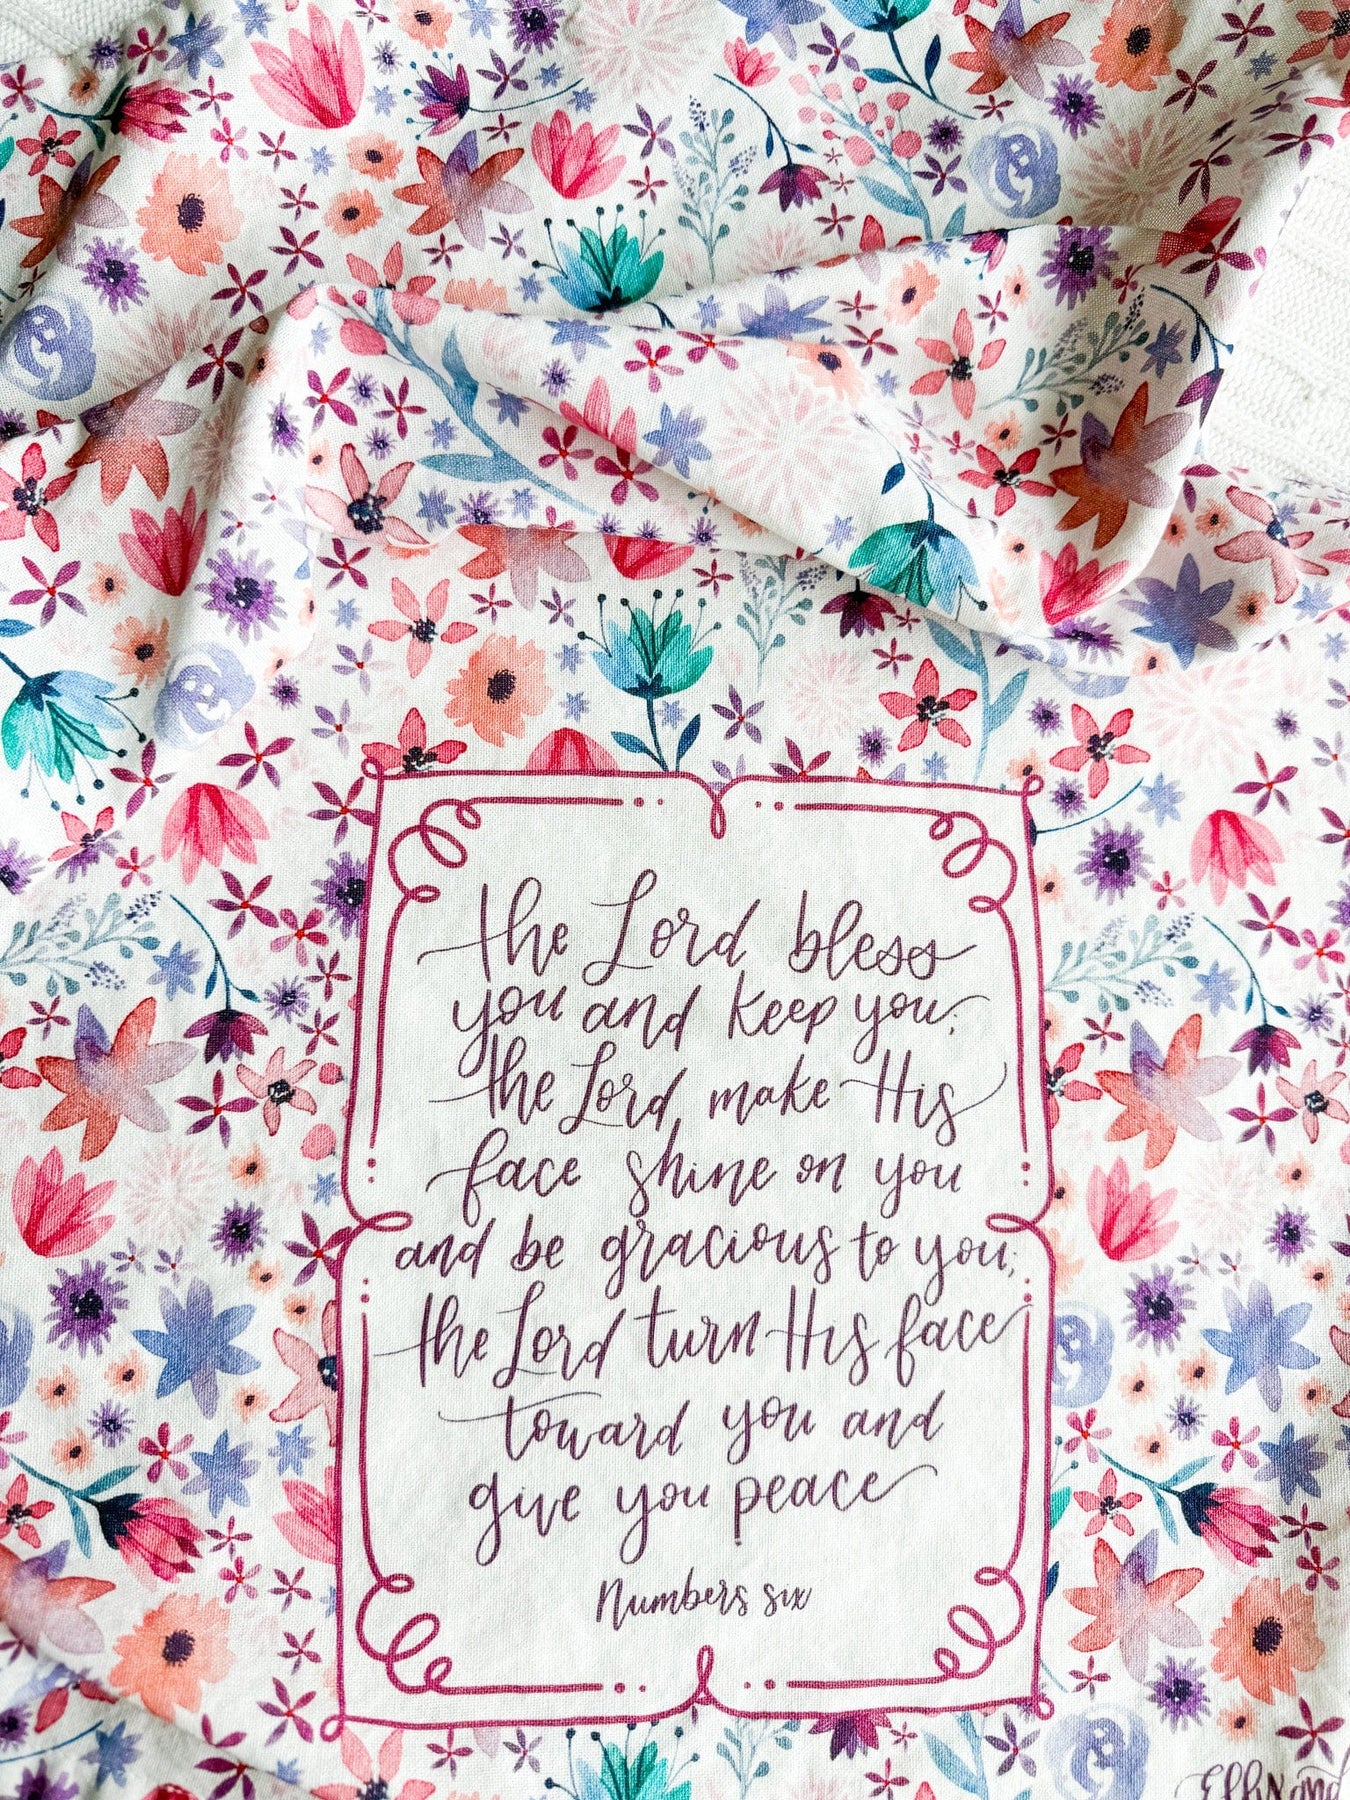 the Lord bless
you and keep you;
the Lord make His
face shine on you
and be gracious to you;
the Lord turn His face
toward you and
give you peace
Numbers six